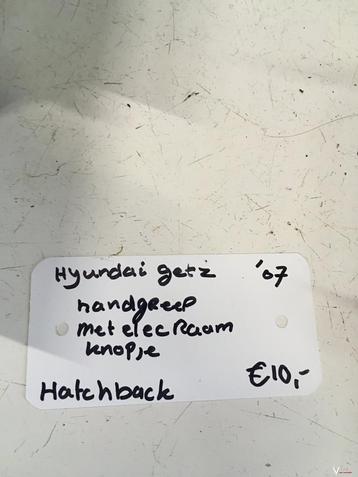 Hyundai getz '07
handgreep
met elec Raam
knopje
€10,-
Hatchback